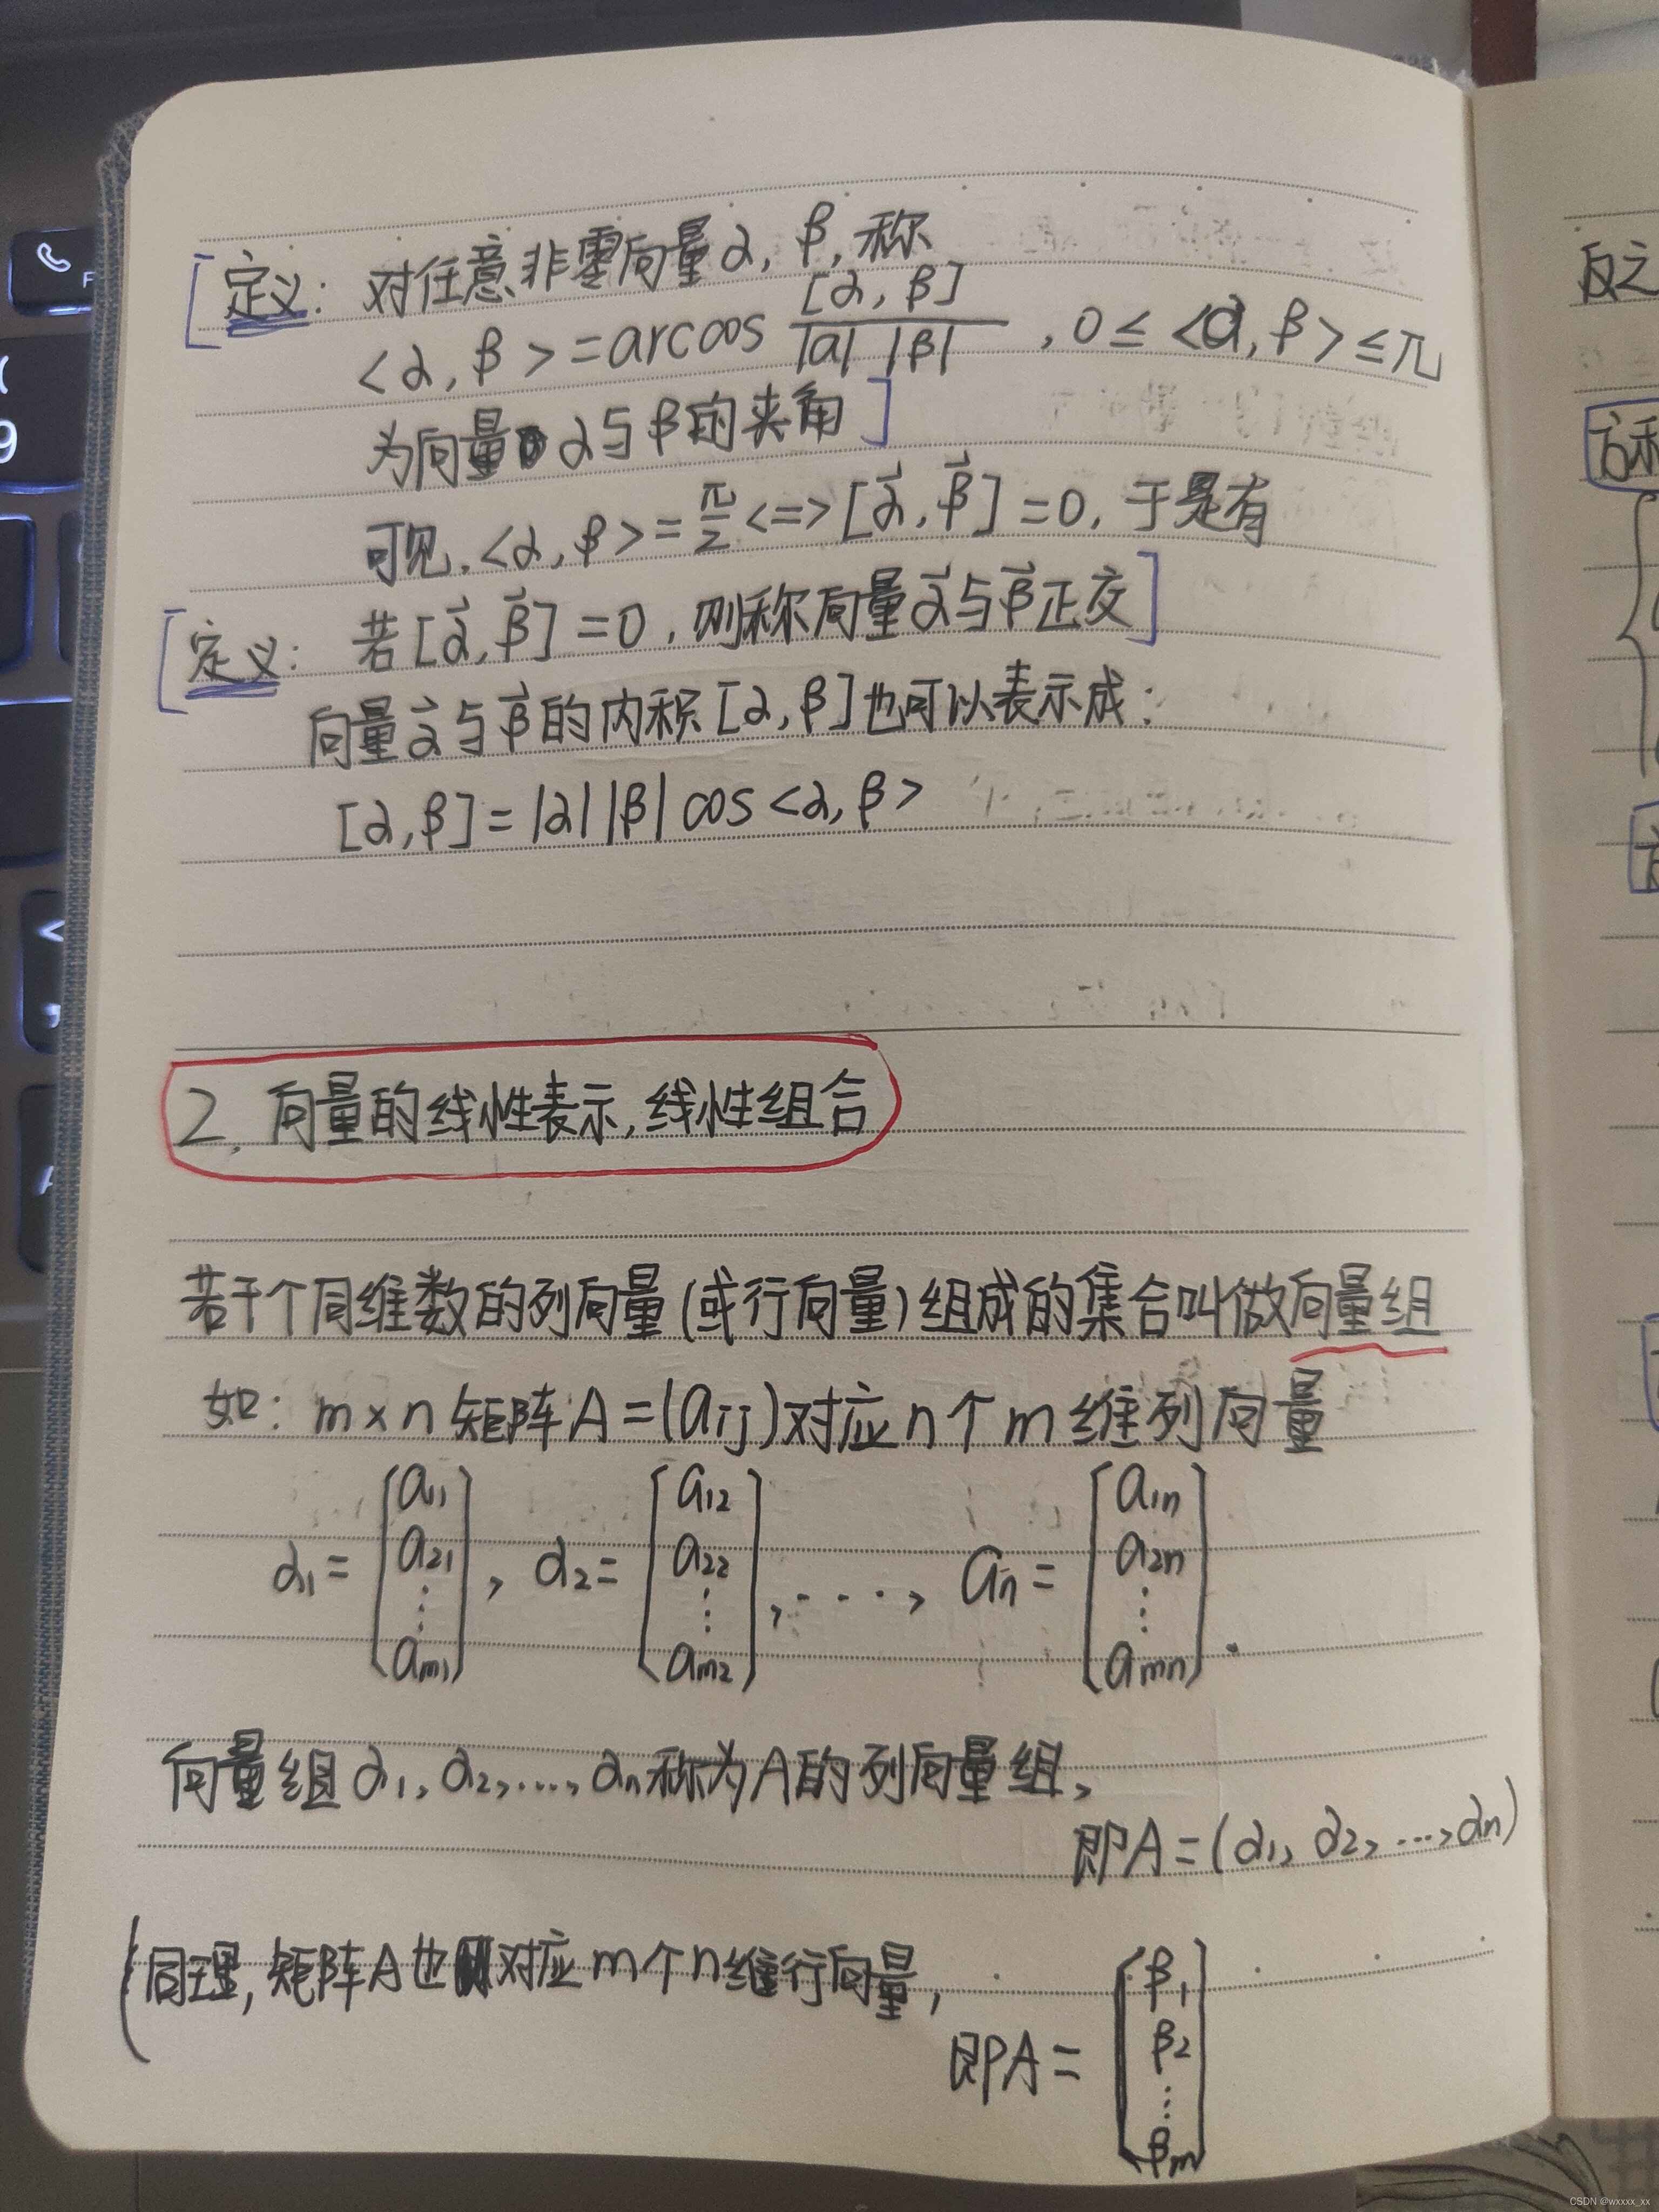 [定义: 对任意非零向量α, β, 称
<α, β> = arccos [α, β] / |a| |β| , 0 ≤ <α, β> ≤ π
为向量α与β的夹角]
可见. <α, β> = π/2 <=> [α⃗, β⃗] = 0, 于是有
[定义: 若[α⃗, β⃗] = 0, 则称向量α⃗与β⃗正交]
向量α⃗与β⃗的内积[α, β]也可以表示成:
[α, β] = |α| |β| cos <α, β>
2. 向量的线性表示, 线性组合
若干个同维数的列向量(或行向量)组成的集合叫做向量组
如: m×n 矩阵A = (aij) 对应n个m维列向量
α1 = [a11 a21 ⋮ am1], α2 = [a12 a22 ⋮ am2], ····, an = [a1n a2n ⋮ amn].
向量组α1, α2, ..., αn称为A的列向量组,
即A = (α1, α2, ..., αn)
(同理, 矩阵A也对应m个n维行向量,
即A = [β1 β2 ⋮ βm]
反之
CSDN @wxxxx_xx